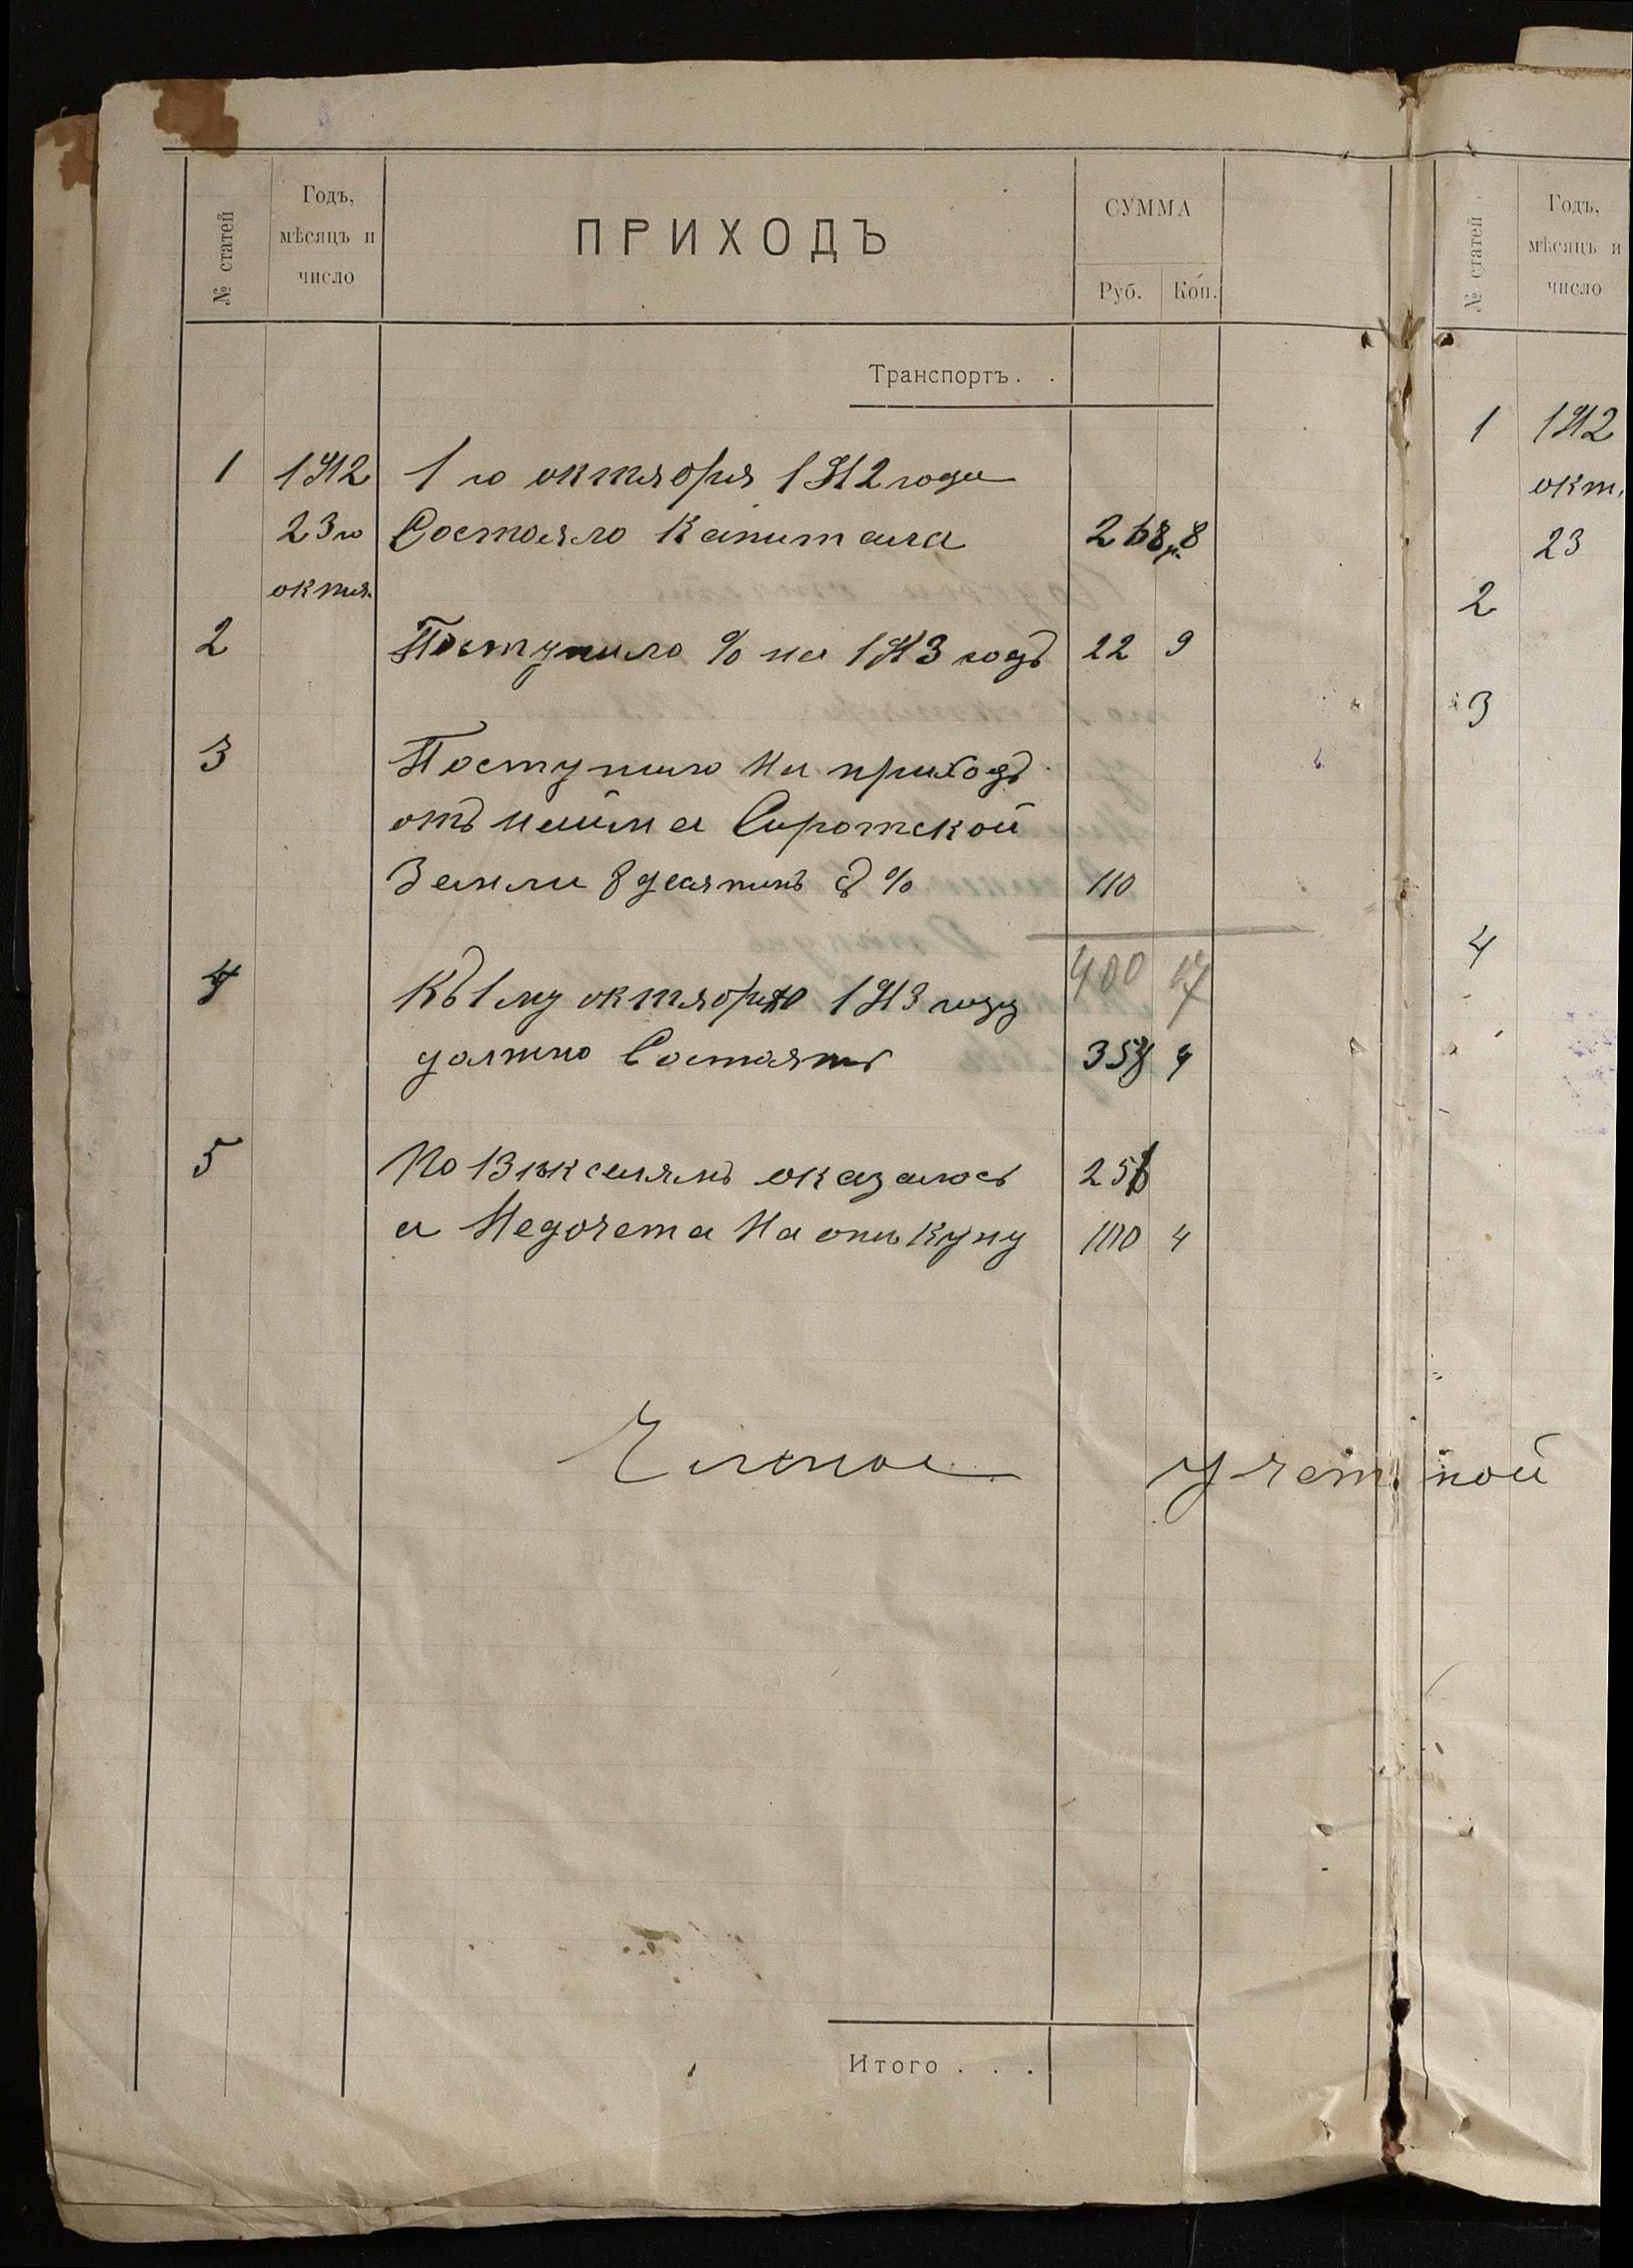 № статей
Годъ, мѣсяцъ и число
ПРИХОДЪ
СУММА
Руб. Коп.
Транспортъ . .
1 1912 1го октября 1912 года
23го Состояло Капитала 268 р. 8
октя.
2 Поступило % на 1913 годъ 22 9
3 Поступило На приходъ
отъ найма Сиротской
Земли 8 десятинъ съ % 110
400 17
4 Къ 1му октября 1913 году
должно Состоять 357 4
5 По Вѣкселямъ оказалось 256
а Недочета На опекуну 100 4
Члено учетной
Итого . . .
№ статей
Годъ, мѣсяцъ и число
1 1912
окт.
23
2
3
4